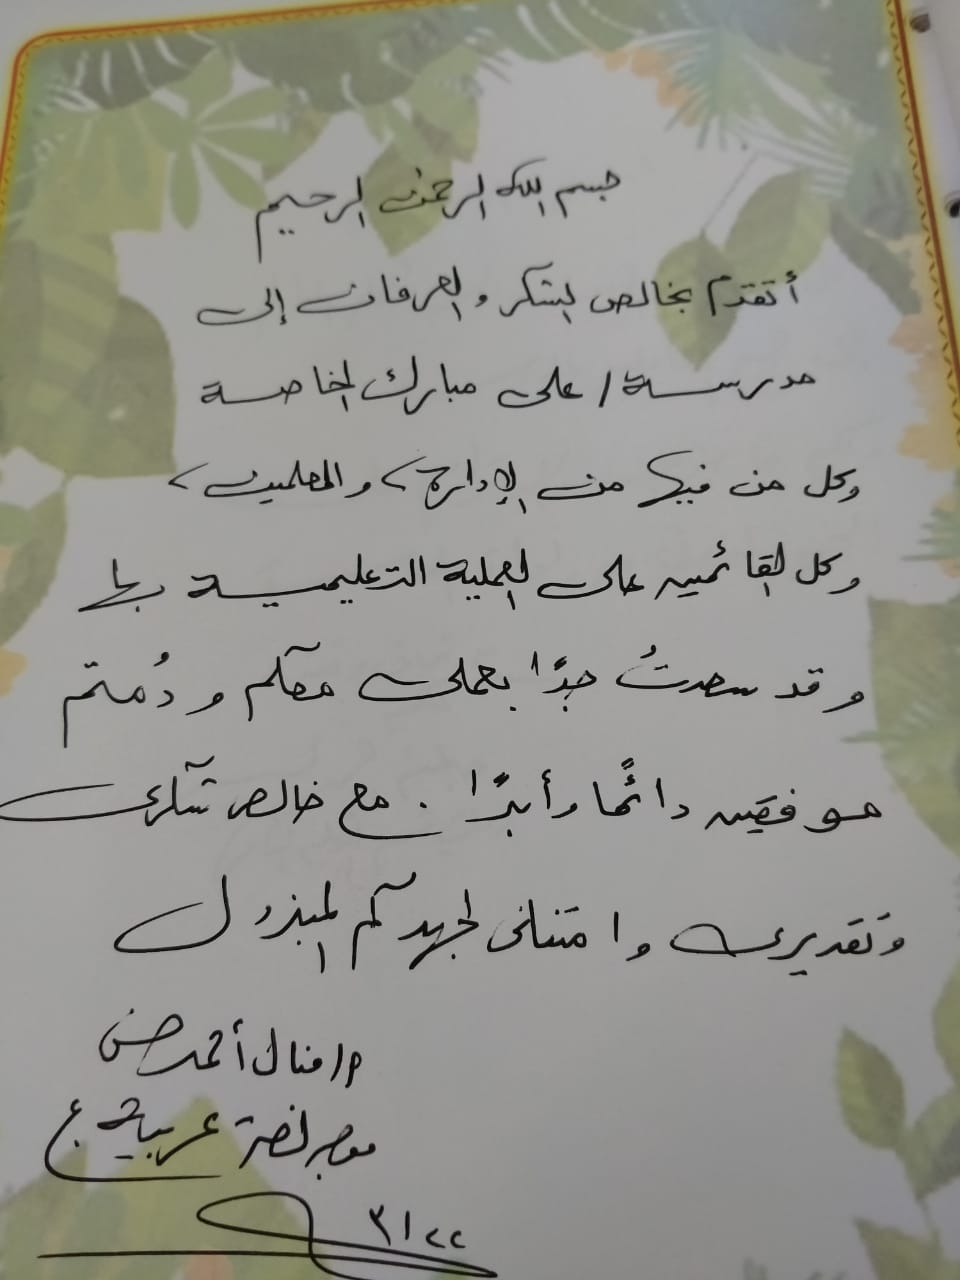 بسم الله الرحمن الرحيم
أتقدم بخالص الشكر والعرفان إلى
مدرسة / على مبارك الخاصة
وكل من فيها من الإدارة، والمعلمين،
وكل القائمين على العملية التعليمية بها
وقد سعدتُ جدًا بعملى معكم ودُمتم
موفقين دائمًا وأبدًا. مع خالص شكرى
وتقديرى وامتنانى لجهدكم المبذول
م/ منال أحمد حسن
موجه لغة عربية ع